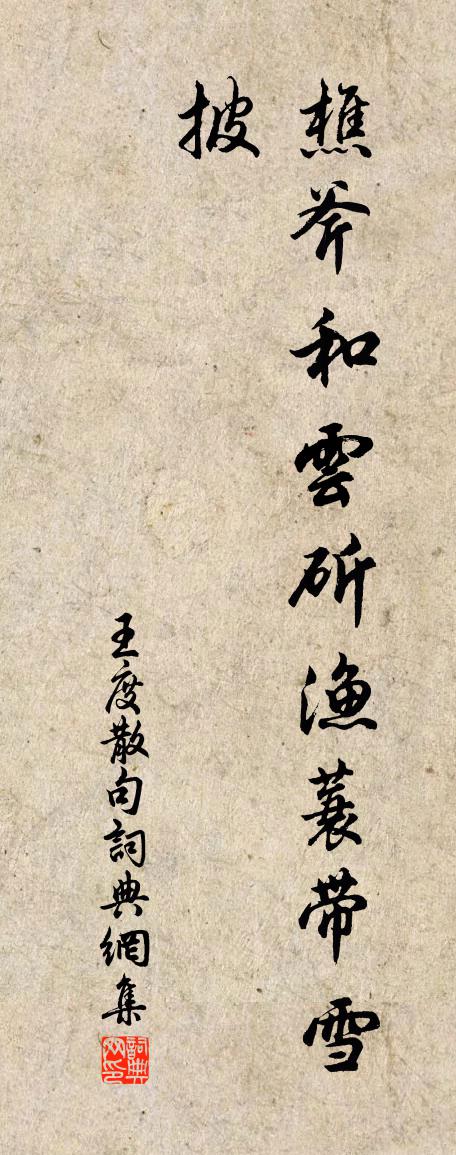 樵斧和雲斫漁蓑帶雪
披
王度散句詞典網集
詞典網印